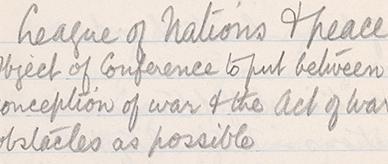 League of Nations & peace
Object of Conference to put between
conception of war & the Act of War
obstacles as possible